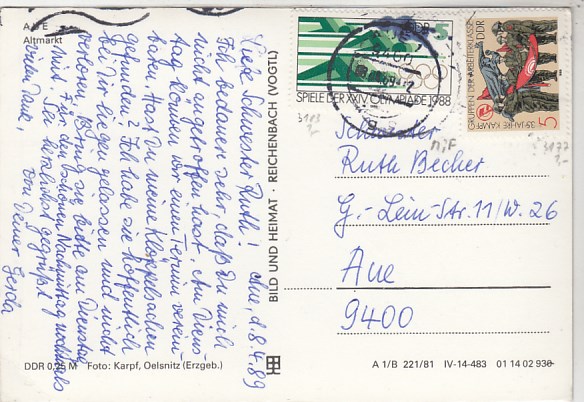 AUE
Altmarkt
Aue, d. 8.4.89
Liebe Schwester Ruth!
Ich bedaure sehr, daß Du mich
nicht angetroffen hast. Am Diens-
tag können wir einen Termin verein-
baren. Hast Du meine Klöppelsachen
gefunden? Ich habe sie hoffentlich
bei Dir liegen gelassen und nicht
verloren. Bring sie bitte am Dienstag
mit. Für den schönen Nachmittag nochmals
vielen Dank,
Sei herzlichst gegrüßt
von Deiner Gerda
BILD UND HEIMAT · REICHENBACH (VOGTL)
DDR 0,25 M Foto: Karpf, Oelsnitz (Erzgeb.)
DDR 5
SPIELE DER XXIV. OLYMPIADE 1988
DDR
35 JAHRE KAMPF-
GRUPPEN DER ARBEITERKLASSE
5
3183
3177
Schwester
Ruth Becher
G.-Lein-Str. 11/W. 26
Aue
9400
A 1/B 221/81 IV-14-483 01 14 02 930